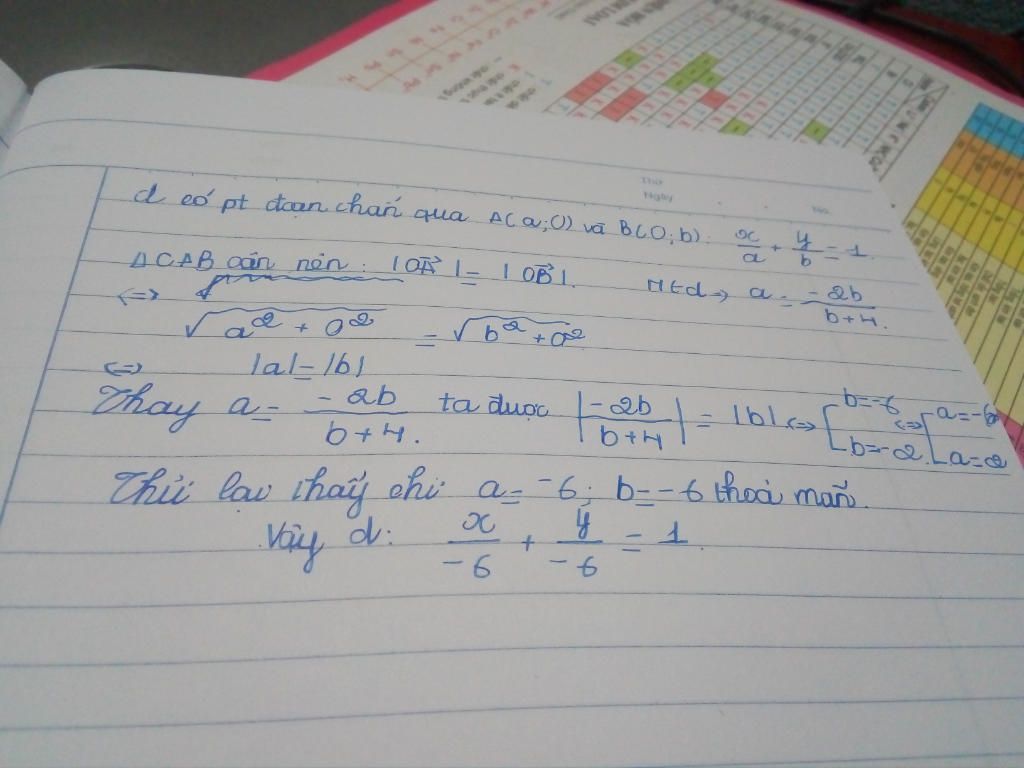 Thứ
Ngày
No.
d có pt đoạn chắn qua A(a;0) và B(0;b): x/a + y/b = 1.
ΔCAB cân nên: |OA⃗| = |OB⃗|. M∈d → a = -2b/(b+4).
<=> √(a² + 0²) = √(b² + 0²)
<=> |a| = |b|
Thay a = -2b/(b+4). ta được |-2b/(b+4)| = |b| <=> [b=-6 <=> [a=-6
[b=-2. [a=2
Thử lại thấy chỉ a = -6; b = -6 thoả mãn.
Vậy d: x/-6 + y/-6 = 1.